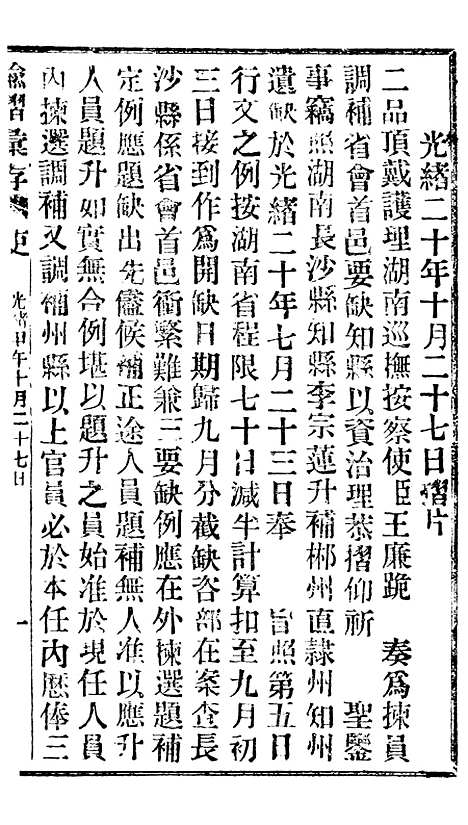 光緒二十年十月二十七日摺片
二品頂戴護理湖南巡撫按察使臣王廉跪 奏爲揀員
調補省會首邑要缺知縣以資治理恭摺仰祈 聖鑒
事竊照湖南長沙縣知縣李宗蓮升補郴州直隸州知州
遺缺於光緒二十年七月二十三日奉 旨照第五日
行文之例按湖南省程限七十日減半計算扣至九月初
三日接到作爲開缺日期歸九月分截缺咨部在案查長
沙縣係省會首邑衝繁難兼三要缺例應在外揀選題補
定例應題缺出先儘候補正途人員題補無人准以應升
人員題升如實無合例堪以題升之員始准於現任人員
內揀選調補又調補州縣以上官員必於本任內歷俸三
諭摺彙存 光緒甲午十月二十七日 一